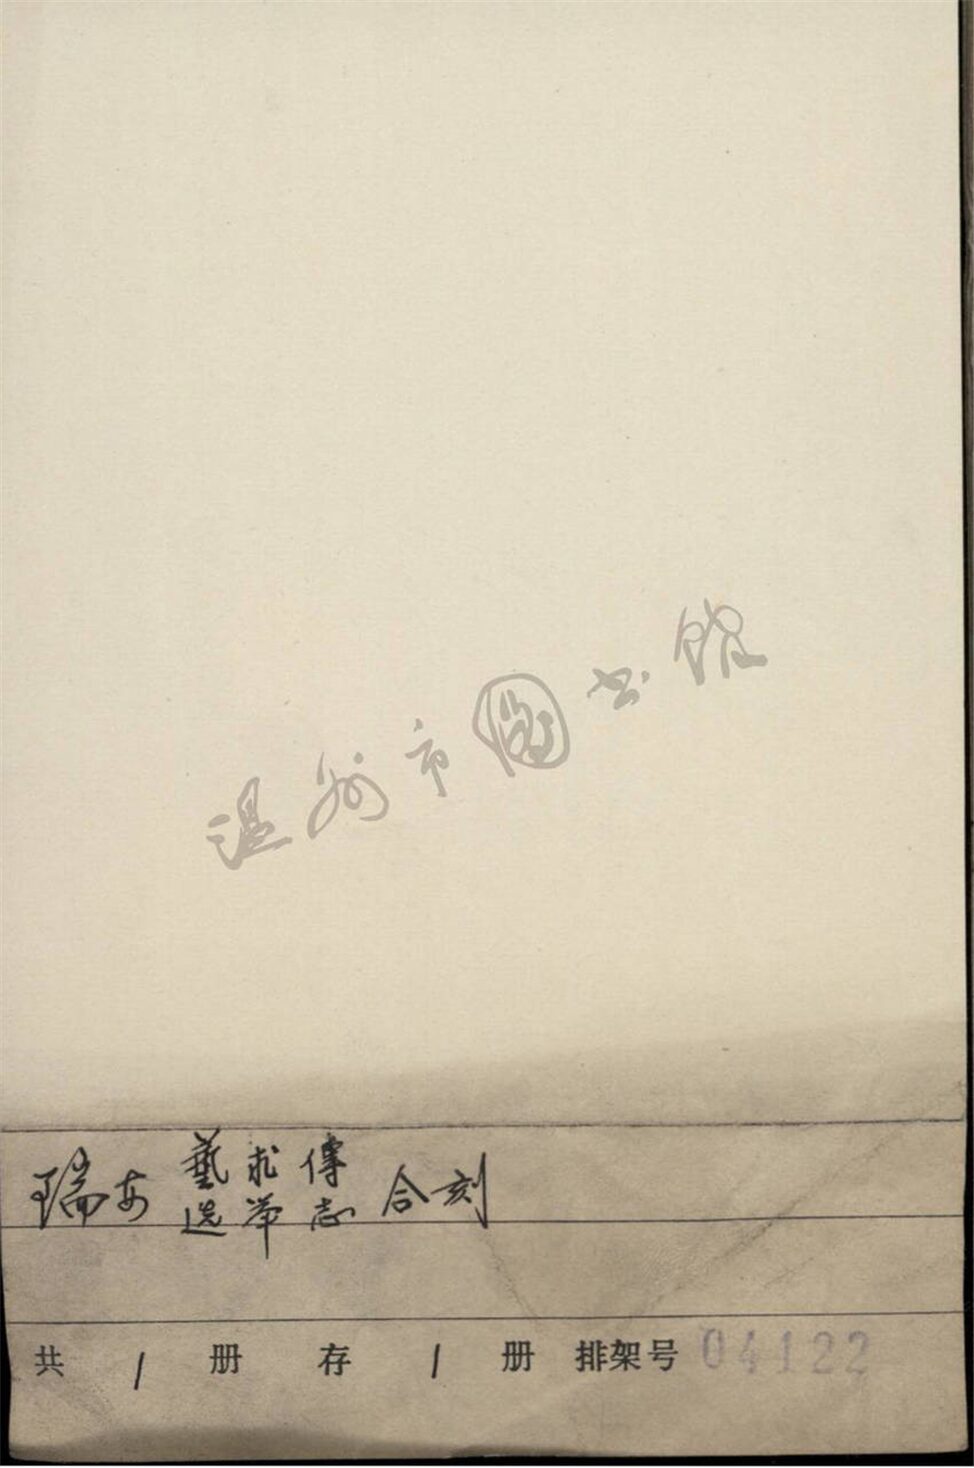 温州市图书馆
瑞安藝术傳合刻
选举志
共 1 册 存 1 册 排架号 04122